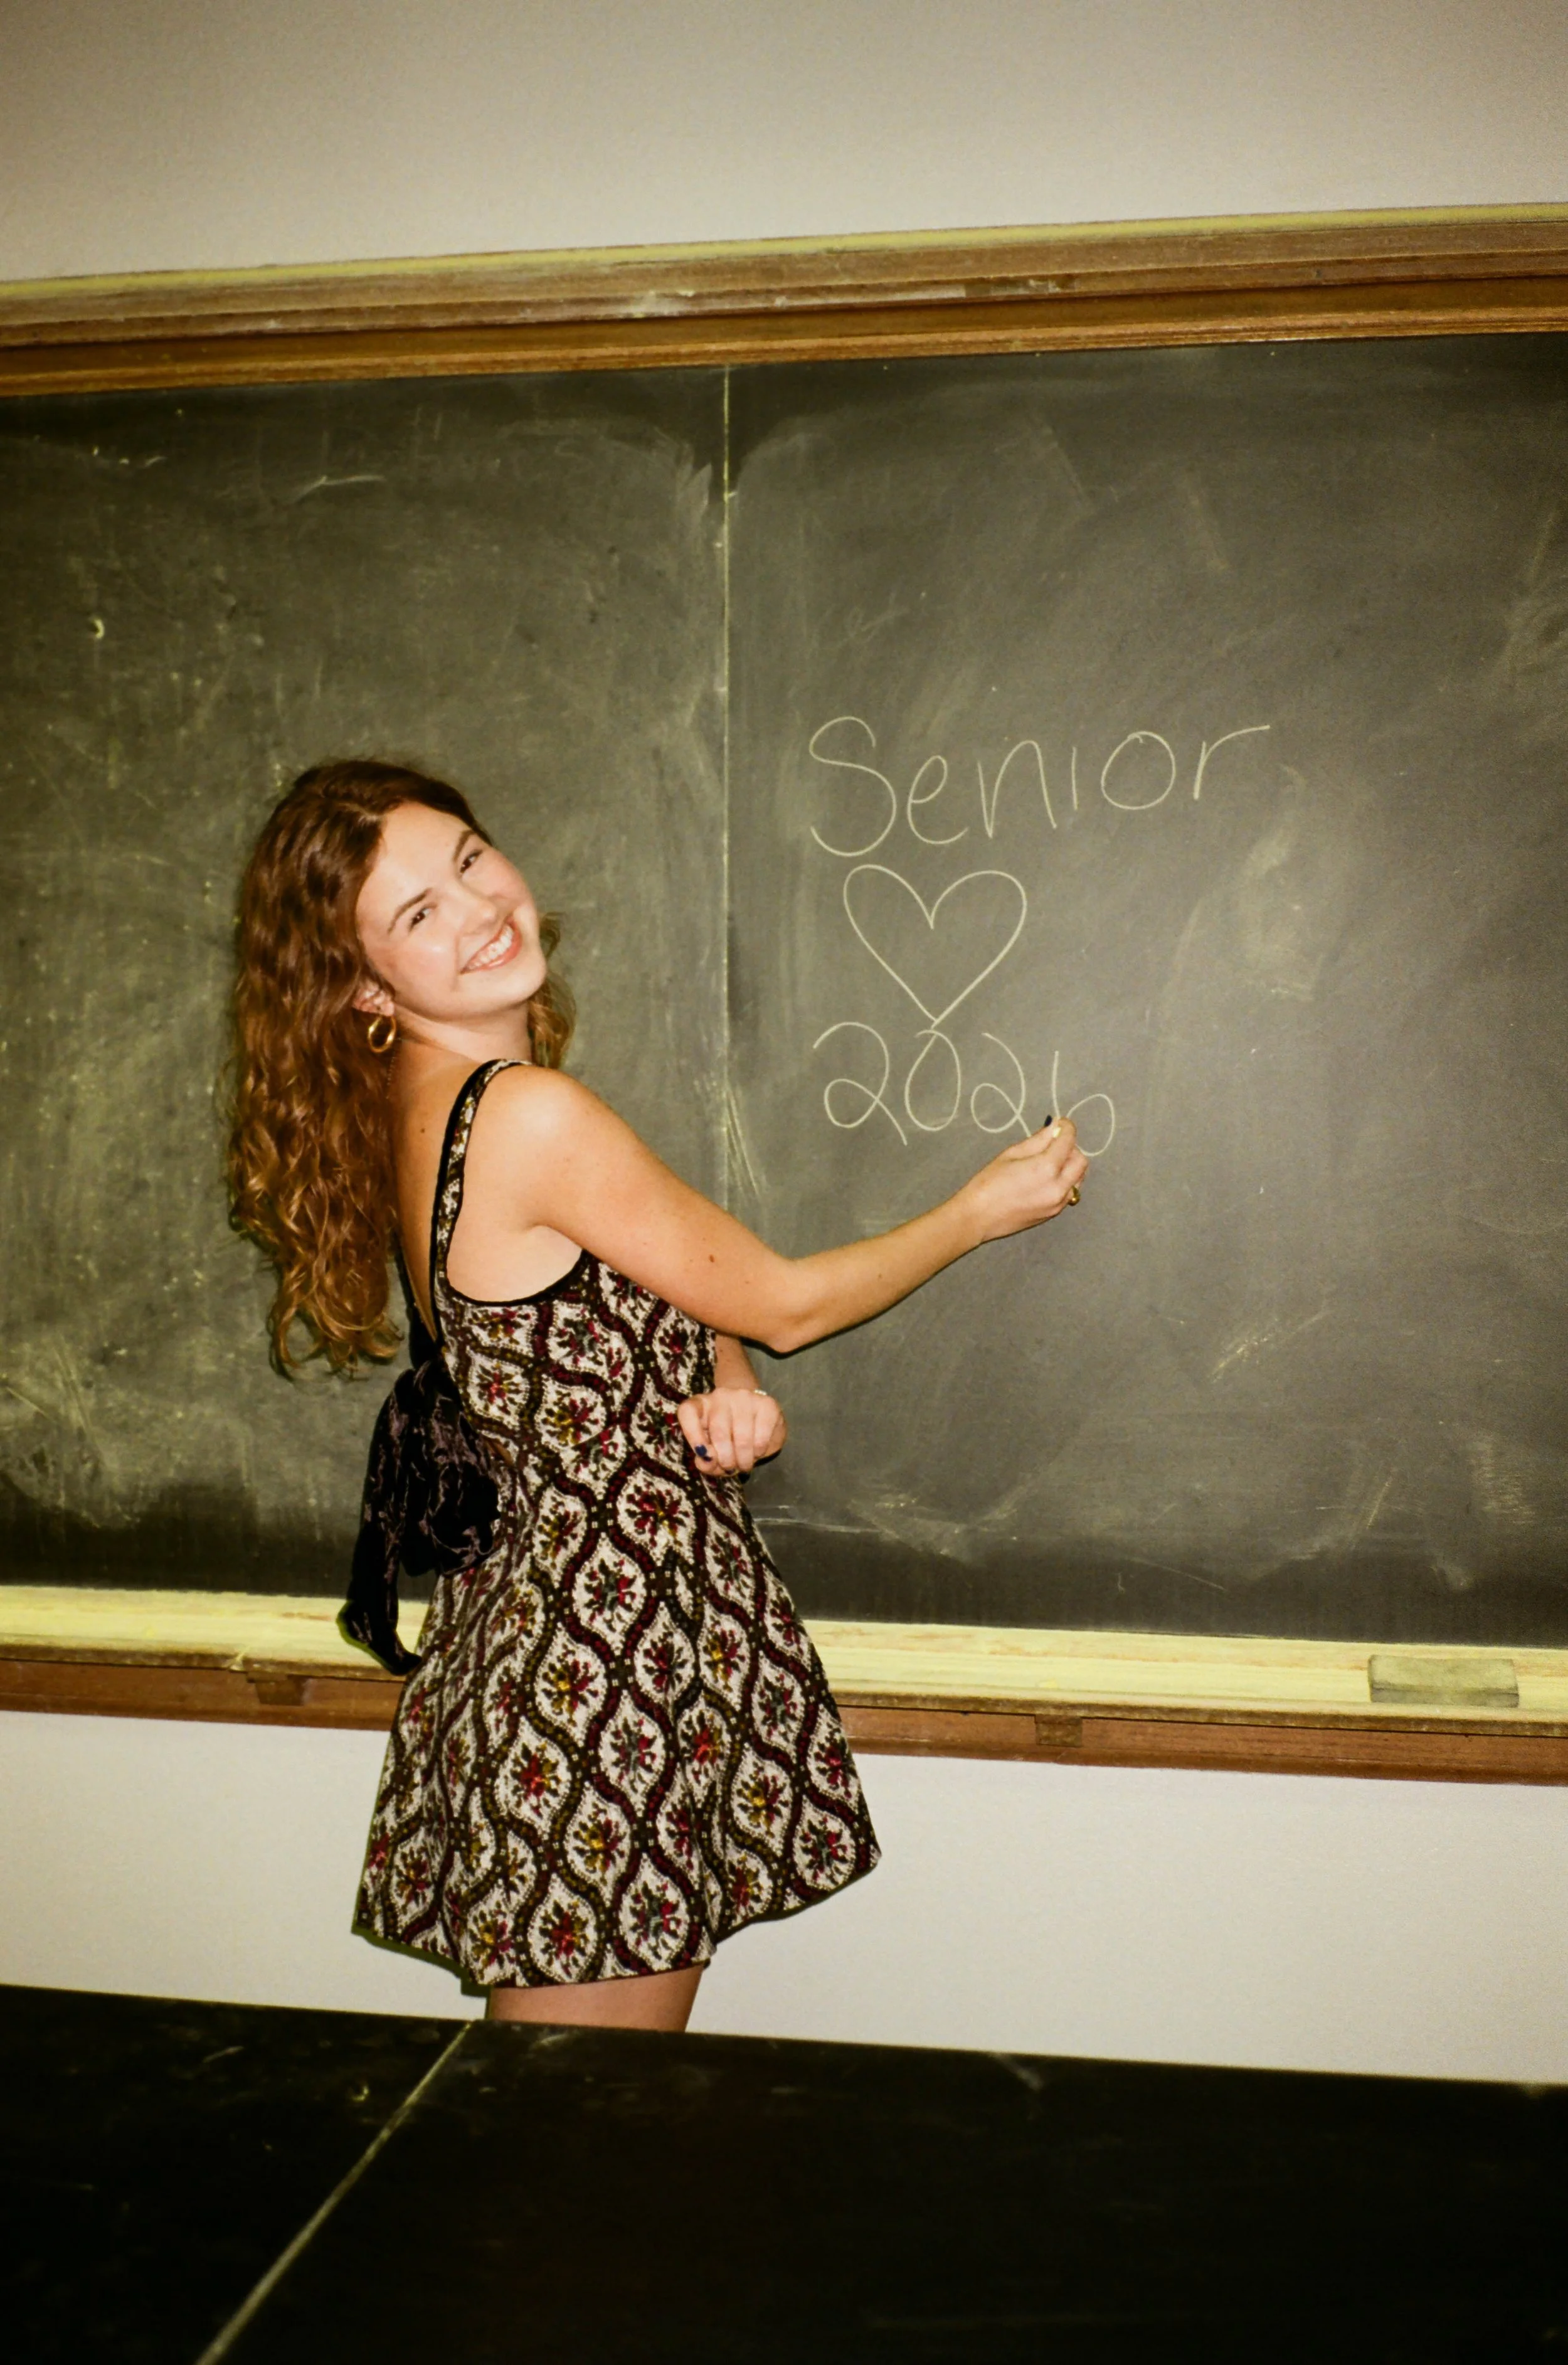 Senior
2026